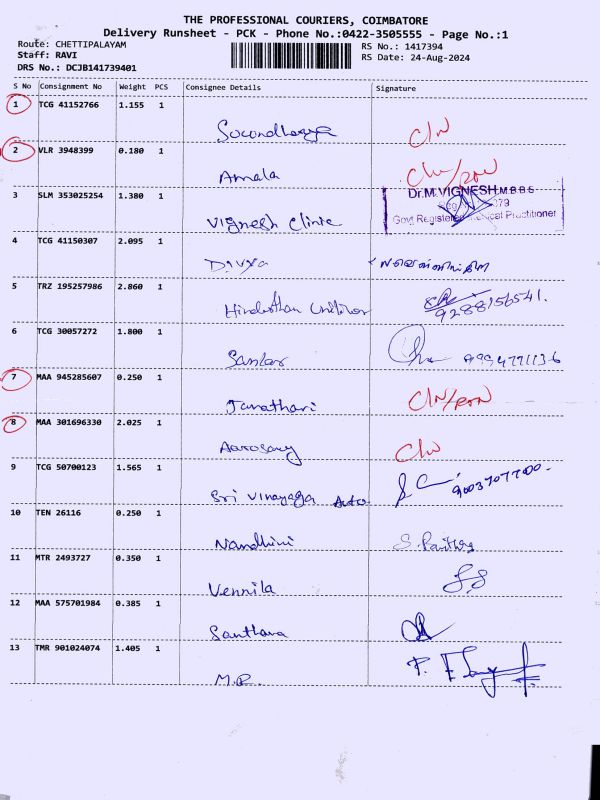 THE PROFESSIONAL COURIERS, COIMBATORE
Delivery Runsheet - PCK - Phone No.:0422-3505555 - Page No.:1
Route: CHETTIPALAYAM RS No.: 1417394
Staff: RAVI RS Date: 24-Aug-2024
DRS No.: DCJB141739401
S No Consignment No Weight PCS Consignee Details Signature
1 TCG 41152766 1.155 1
C/N
2 VLR 3948399 0.180 1
Amala
3 SLM 353025254 1.380 1 Dr.M.VIGNESH M.B.B.S
Vignesh Clinic Govt Registered Medical Practitioner
4 TCG 41150307 2.095 1
Divya
5 TRZ 195257986 2.860 1
Hindusthan 9288156541.
6 TCG 30057272 1.800 1
Sankar 9994771136
7 MAA 945285607 0.250 1
C/N/RTN
8 MAA 301696330 2.025 1
9 TCG 50700123 1.565 1
Sri Vinayaga Auto 9003707700.
10 TEN 26116 0.250 1
Nandhini
11 MTR 2493727 0.350 1
Vennila
12 MAA 575701984 0.385 1
Santhana
13 TMR 901024074 1.405 1
M.R.